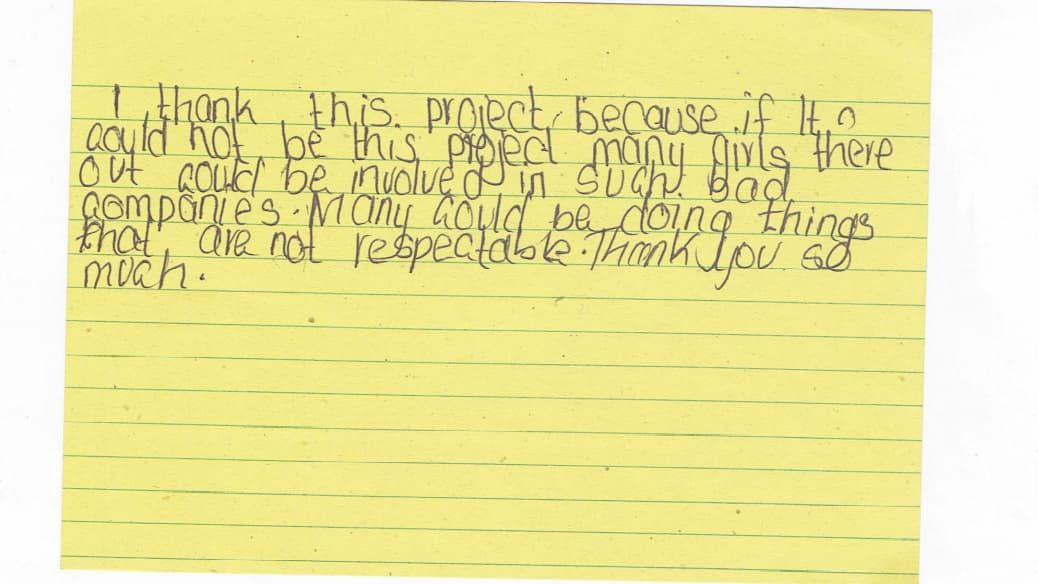 I thank this project, because if It
could not be this project many girls there
out could be involved in such bad
companies. Many could be doing things
that are not respectable. Thank you so
much.